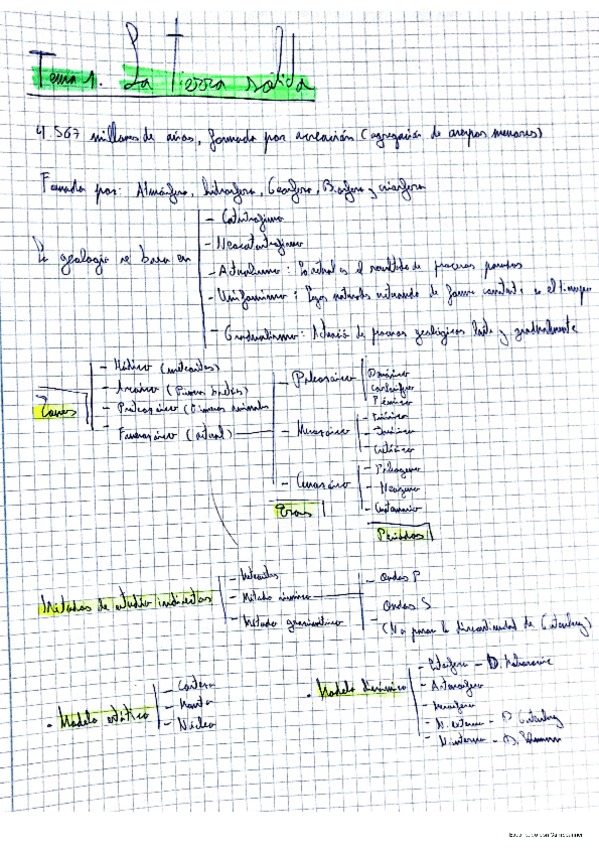 Tema 1. La Tierra sólida
4.567 millones de años, formada por acreación (agregación de cuerpos menores)
Formada por: Atmósfera, hidrosfera, Geosfera, Biosfera y criosfera
La geología se basa en
- Catastrofismo
- Neocatastrofismo
- Actualismo: Lo actual es el resultado de procesos pasados
- Uniformismo: Leyes naturales actuando de forma constante en el tiempo
- Gradualismo: de procesos geológicos lenta y gradualmente
Eones
- Hádico (meteoritos)
- Arcaico (Primeras bacterias)
- Proterozoico (Primeros animales
- Fanerozoico (actual)
- Paleozoico
Devónico
Carbonífero
Pérmico
- Mesozoico
- Triásico
- Jurásico
- Cretácico
- Cenozoico
- Paleógeno
- Neógeno
- Cuaternario
Eras
Periodos
Métodos de estudio indirectos
- Meteoritos
- Método sísmico
- Método gravimétrico
- Ondas P
Ondas S
(No pasan la discontinuidad de Gutenberg)
. Modelo estático
- Corteza
- Manto
- Núcleo
. Modelo dinámico
- Litosfera - D. Mohorovicic
- Astenosfera
- Mesosfera
- N. externo - D. Gutenberg
- N interno - D. Lehmann